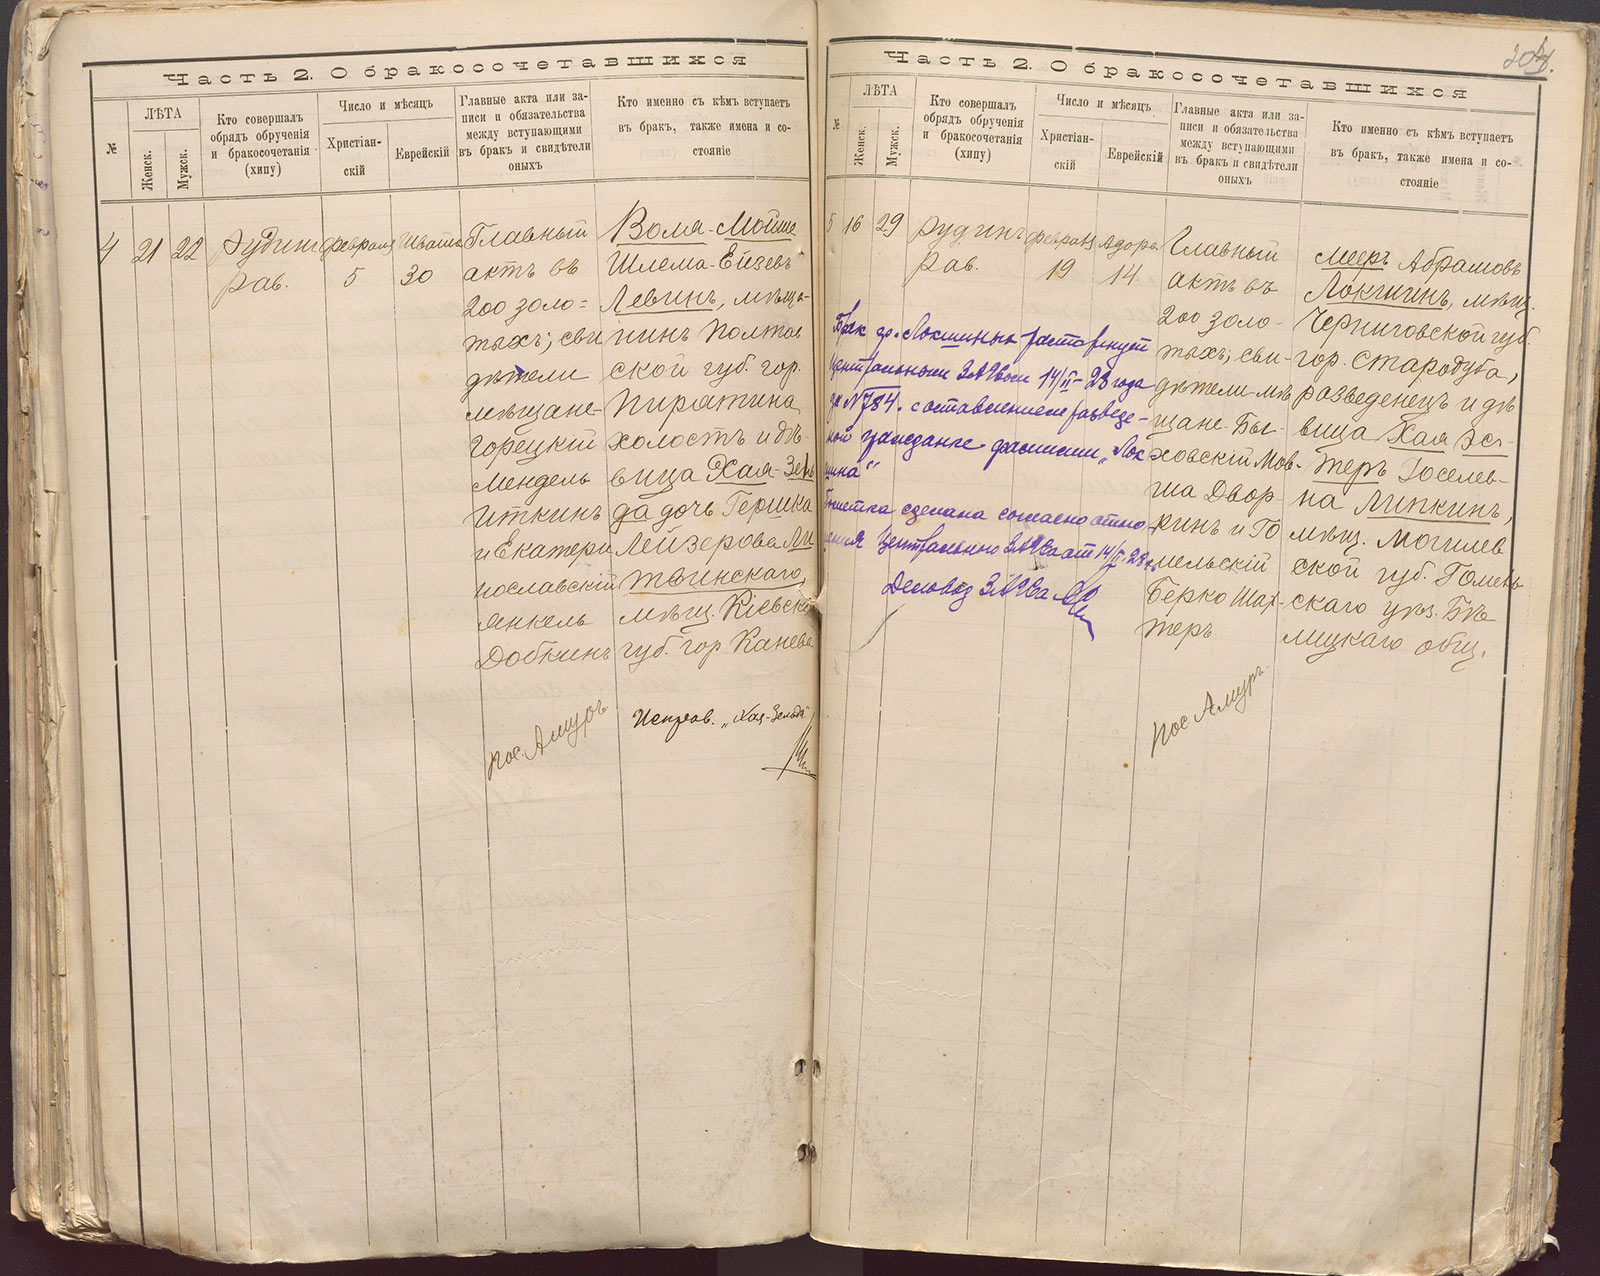 Часть 2. О бракосочетавшихся
№
ЛѢТА
Женск.
Мужск.
Кто совершалъ
обрядъ обрученія
и бракосочетанія
(хипу)
Число и мѣсяцъ
Христіан-
скій
Еврейскій
Главные акта или за-
писи и обязательства
между вступающими
въ бракъ и свидѣтели
оныхъ
Кто именно съ кѣмъ вступаетъ
въ бракъ, также имена и со-
стояніе
4
21
22
Рудинъ
Рав.
Февраля
5
Швата
30
Главный
актъ въ
200 золо=
тыхъ; сви
дѣтели
мѣщане-
Горецкій
Мендель
Иткинъ
и Екатери
нославскій
Янкель
Добкинъ
пос. Амуръ
Вома-Мойше
Шлема-Ейзевъ
Левинъ, мѣща-
нинъ Полтав
ской губ. гор.
Пирятина
холостъ и дѣ-
вица Хая-Зель
да дочь Гершка
Лейзерова Ли
твинскаго
мѣщ. Кіевской
губ. гор Канева
Исправ. „Хая-Зельда"
Часть 2. О бракосочетавшихся
204.
№
ЛѢТА
Женск.
Мужск.
Кто совершалъ
обрядъ обрученія
и бракосочетанія
(хипу)
Число и мѣсяцъ
Христіан-
скій
Еврейскій
Главные акта или за-
писи и обязательства
между вступающими
въ бракъ и свидѣтели
оныхъ
Кто именно съ кѣмъ вступаетъ
въ бракъ, также имена и со-
стояніе
5
16
29
Рудинъ
Рав.
Февраля
19
Адора
14
Главный
актъ въ
200 золо-
тыхъ; сви-
дѣтели-мѣ
щане-Бы-
ховскій Мов-
ша Двор-
кинъ и Го
мельскій
Берко Шах-
теръ.
пос Амуръ
Мееръ Абрамовъ
Локшинъ, мѣщ.
Черниговской губ.
гор. Стародуба,
разведенецъ и дѣ
вица Хая Эс-
теръ Іоселев-
на Липкинъ,
мѣщ. Могилев
ской губ. Гомель
скаго уѣз. Бѣ
лицкаго общ.
Брак гр. Локшиных расторгнут
Центральным ЗАГСом 14/II-28 года
за N 784. с оставлением разведе-
ной гражданке фамилии „Лок
шина"
Отметка сделана согласно отно-
шения Центрального ЗАГСа от 14/II 28 г.
Деловод ЗАГСа